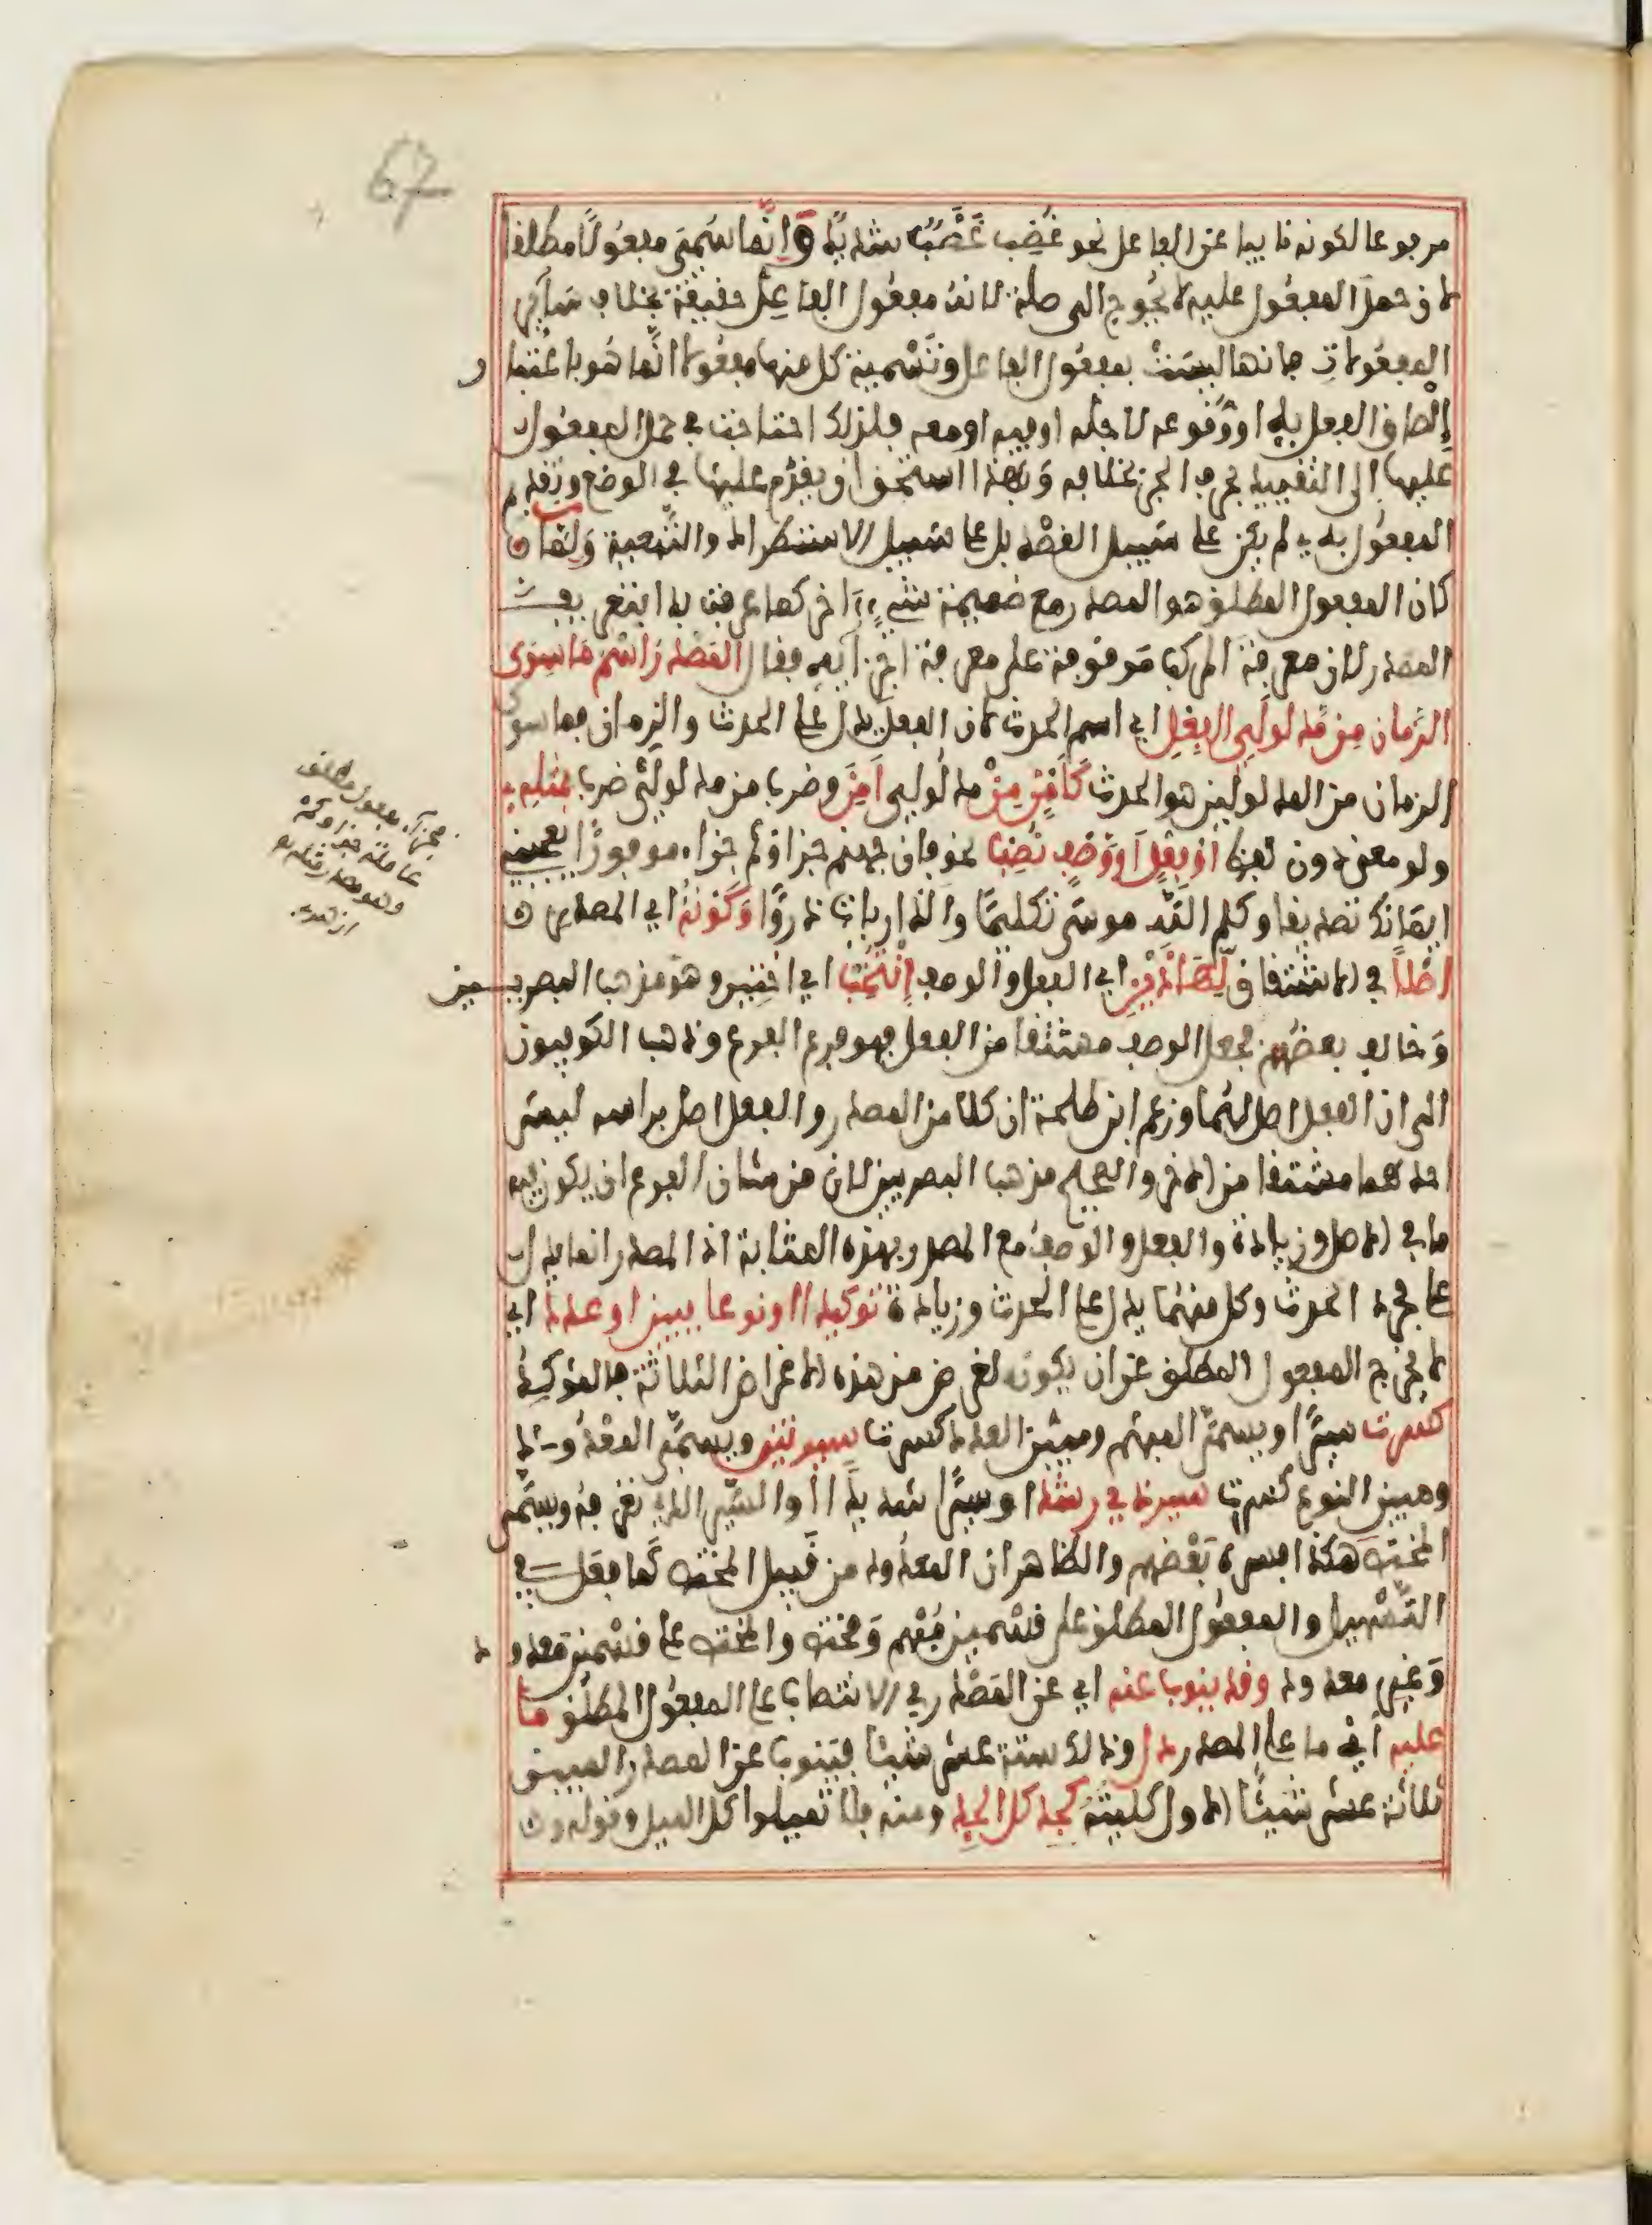 67
مرفوعا لكونه نايبا عن الفاعل نحو غُضِب غَضَبٌ شديدٌ وَإنّما سُمّيَ مفعُولًا مطلقا
لان حمل المفعُول عليه لا يُحْوِج الى صلة لانهُ مفعُول الفاعِل حقيقة بخلاف سَآئِر
المفعُولات فانها ليسَتْ بمفعُول الفاعل وتَسْمية كل منها مفعُولا انّما هُو باعْتبار
إلْصاق الفعل بِهِ او وُقوعه لاجله او فيه او معه فلذلك احتاجت في حمل المفعُول
عليها الى التقييد بحرف الجر بخلافه وَبهذا استحق ان يقدّم عليها في الوضع وتقديم
المفعُول به لم يكن على سَبيل القصْد بل على سَبيل الاستطراد والتّبعية وَلمّا
كان المفعول المطلق هو المصدر مع ضميمة شيءٍ آخر كما عرفت بدا بتعريف
المصدر لان معرفة المركب مَوقوفة على معرفة اجزآيه فقال المَصْدَرُ اسْمُ مَا سِوَى
الزّمان مِن مّدلولَيِ الفِعْلِ اي اسم الحدث لان الفعل يدل على الحدث والزمان فما سوى
الزمان من المدلولين هو الحدث كَأَمْنٍ مِنْ مدلُولي أَمِنَ وضرب من مدلولَيْ ضرب بمثلِهِ
ولو معنى دون لفظ أَوْ فِعْلٍ أَوْ وَصْفٍ نُصِبَ نحو فان جهنم جزاؤكم جزاء موفورًا يعجبني
ايمَانك تصديقا وكلم اللّه موسَى تكليمًا والذاريات ذروًا وَكَوْنُهُ اي المصدر
اصْلًا في الاشتقاق لِّهَذَيْنِ اي الفعل والوصف اِنْتُخِبَ اي اختير وهو مذهب البصريين
وَخالف بعضُهم فجعل الوصف مشتقا من الفعل فهو فرع الفرع وذهب الكوفيون
الى ان الفعل اصل لهُما وزعم ابن طلحة ان كلا من المصدر والفعل اصل براسه ليسَ
احدهما مشتقا من الاخر والصحيح مذهب البصريين لان من شان الفرع ان يكون فيه
ما في الاصل وزيادة والفعل والوصفُ مع المصدر بهذه المثابة اذ المصدر انما يدل
على مجرد الحدث وكل منهُما يدل على الحدث وزيادة توكيدا او نوعا يبين او عدد اي
لا يخرج المفعول المطلق عن ان يكون لغرض من هذه الاغراض الثلاثة فالمؤكِّد
كسرت سيرًا ويسمّى المبهم ومبيّن العدد كسرت سيرتين ويسمّى المعْدُود
ومبين النوع كسرت سير ذي رشد او سيرًا شديدًا او السّير الذي تعرفه ويسَمّى
المختص هكذا فسره بَعْضهم والظاهر ان المعدُود من قَبيل المختص كما فعل في
التّسْهيل والمفعُول المطلق على قسْمين مُبْهم وَمختص والمختص على قسْمين معدود
وَغير معدود وقد ينوب عنه اي عن المَصْدر في الانتصاب على المفعُول المطلق ما
عليه اي ما على المصدر دل وذلك ستة عشر شيئا فينوب عن المصدر المبين
ثلاثة عشر شيئًا الاول كليتهُ كجد كل الجد ومنه فلا تميلوا كل الميل وقوله
جزآء مفعول مطلق
عامله جزاؤكم
وهو مصدر مثله
ازهري